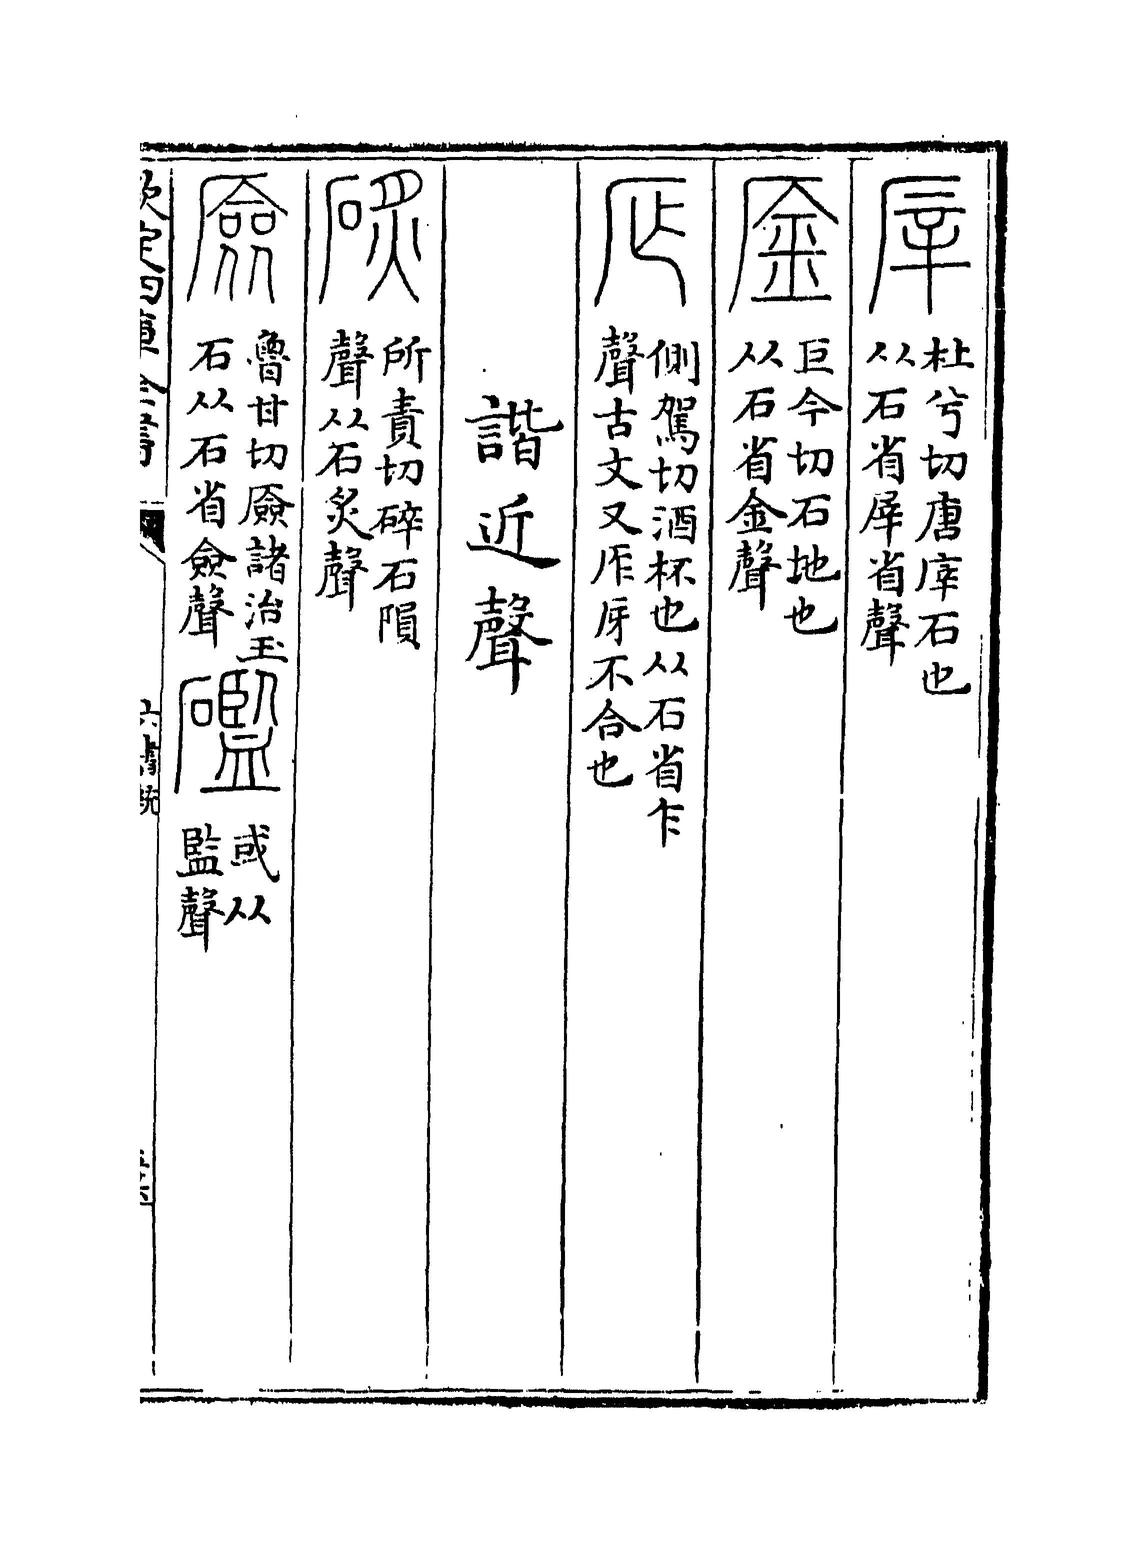 厗
杜兮切唐厗石也
从石省屖省聲
㕋
巨今切石地也
从石省金聲
厏
側駕切酒杯也从石省乍
聲古文又厏厊不合也
諧近聲
所責切碎石隕
聲从石炙聲
厱
魯甘切厱諸治玉
石从石省僉聲
礛
或从
監聲
欽定四庫全書
六書統